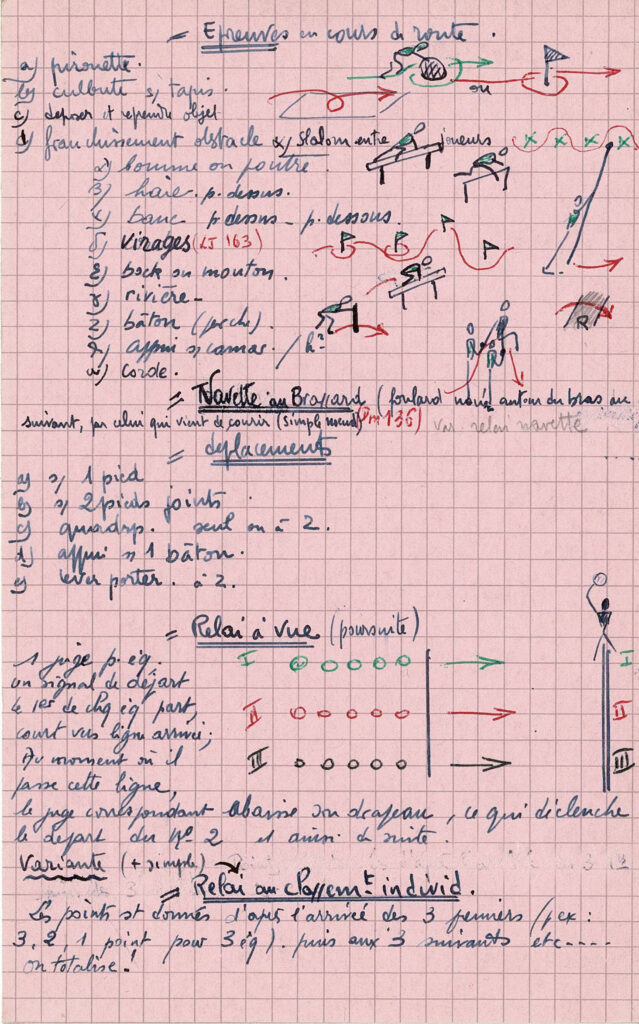 = Epreuves en cours de route.
a) pirouette.
b) culbute s/ tapis.
ou
c) deposer et reprendre objet
d) franchissement obstacle
slalom entre joueurs
x x x x
2) bomme ou poutre.
3) haie. p. dessus.
4) banc p. dessus - p. dessous.
5) virages (LJ 163)
bock ou mouton.
rivière -
R
bâton (perche).
appui s/ camar. /h²
corde.
= Navette au Brassard (foulard noué autour du bras du
suivant, par celui qui vient de courir (simple nœud) (Pm 136) var. relai navette
= deplacements
a) s/ 1 pied
b) s/ 2 pieds joints
c) quadrup. seul ou à 2.
d) appui s/ 1 bâton.
e) lever porter. à 2.
= Relai à vue (poursuite)
1 juge p. éq.
I I
un signal de départ
le 1er de chq éq part,
II II
court vers ligne arrivée;
Au moment où il
III III
passe cette ligne,
le juge correspondant abaisse son drapeau, ce qui déclenche
le départ du N° 2 et ainsi de suite.
Variante (+ simple)
= Relai au classemt individ.
Les points st donnés d'après l'arrivée des 3 premiers (p ex:
3, 2, 1 point pour 3 éq). puis aux 3 suivants etc-----
on totalise!